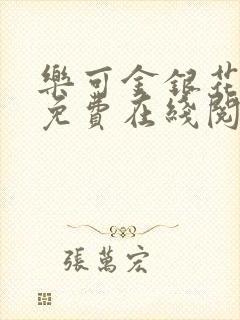 樂可金銀花
免費在綫閱
張萬宏